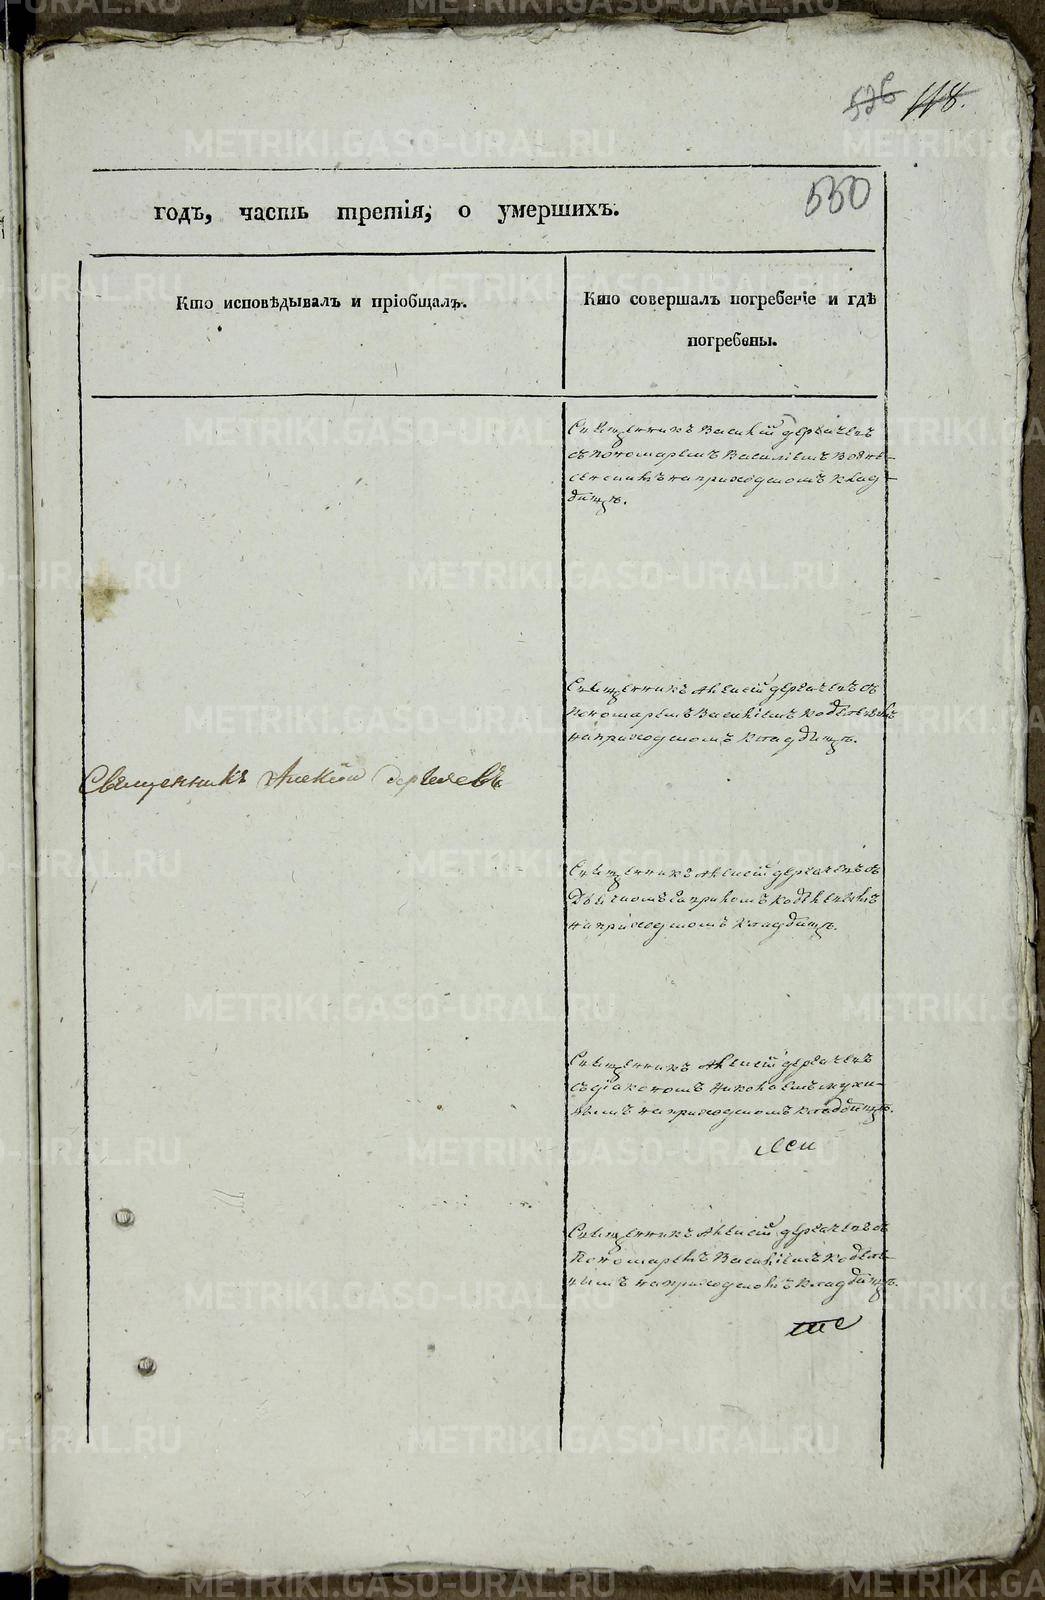 526 118.
550
годъ, часть третія, о умершихъ.
Кто исповѣдывалъ и пріобщалъ.
Кто совершалъ погребеніе и гдѣ
погребены.
Священникъ Василій Дергачевъ
съ пономаремъ Василіемъ Возне-
сенскимъ на приходскомъ клад-
бищѣ.
Священникъ Алексій Дергачевъ съ
Пономаремъ Василіемъ
на приходскомъ кладбищѣ.
Священникъ Алексій Дергачевъ
Священникъ Алексій Дергачевъ съ
на приходскомъ кладбищѣ.
Священникъ Алексій Дергачевъ
съ діакономъ Николаемъ
на приходскомъ кладбищѣ.
Священникъ Алексій Дергачевъ съ
Пономаремъ Василіемъ
на приходскомъ кладбищѣ.
METRIKI.GASO-URAL.RU